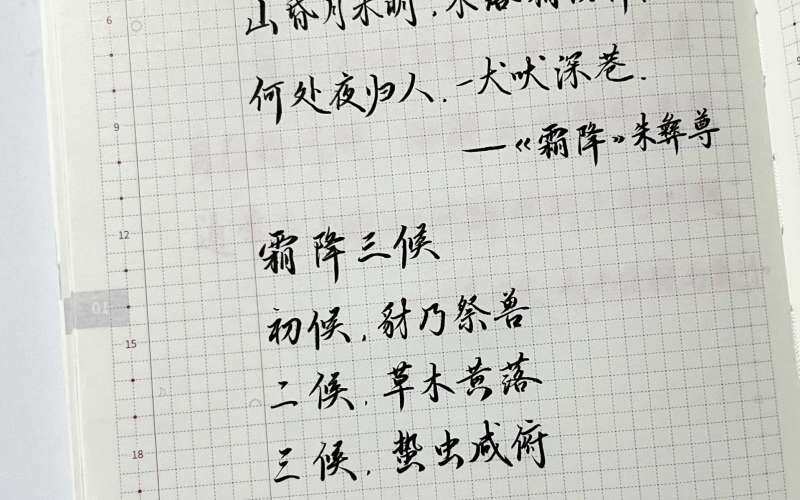 6
山昏月未明,
9
何处夜归人.一犬吠深巷.
—《霜降》朱彝尊
12
霜降三候
01
初候,豺乃祭兽
15
二候,草木黄落
三候,蛰虫咸俯
18